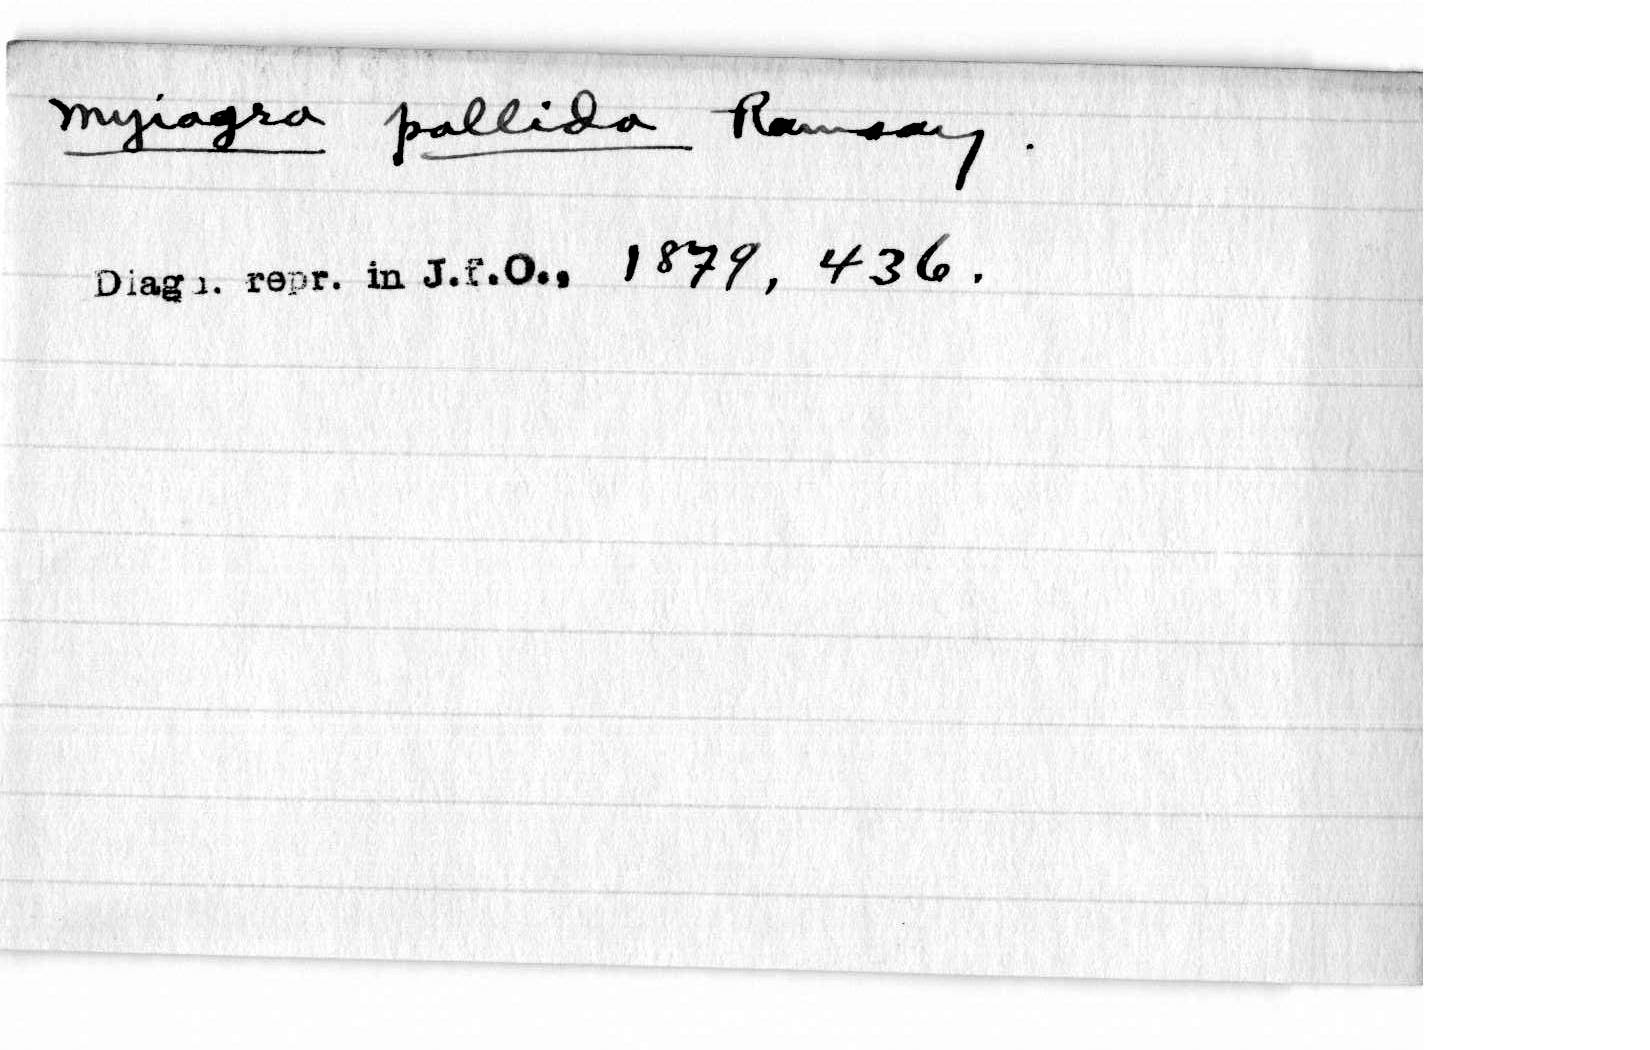 Myiagra pallida Ramsay.
Diagn. repr. in J.f.O., 1879, 436.